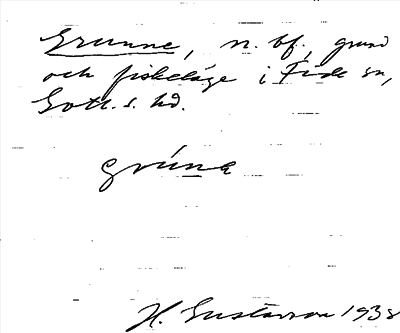 Grunne, n. bf., grund
och fiskeläge i Fide sn,
Gotl. s. hd.
grúnɐ
H. Gustavson 1938